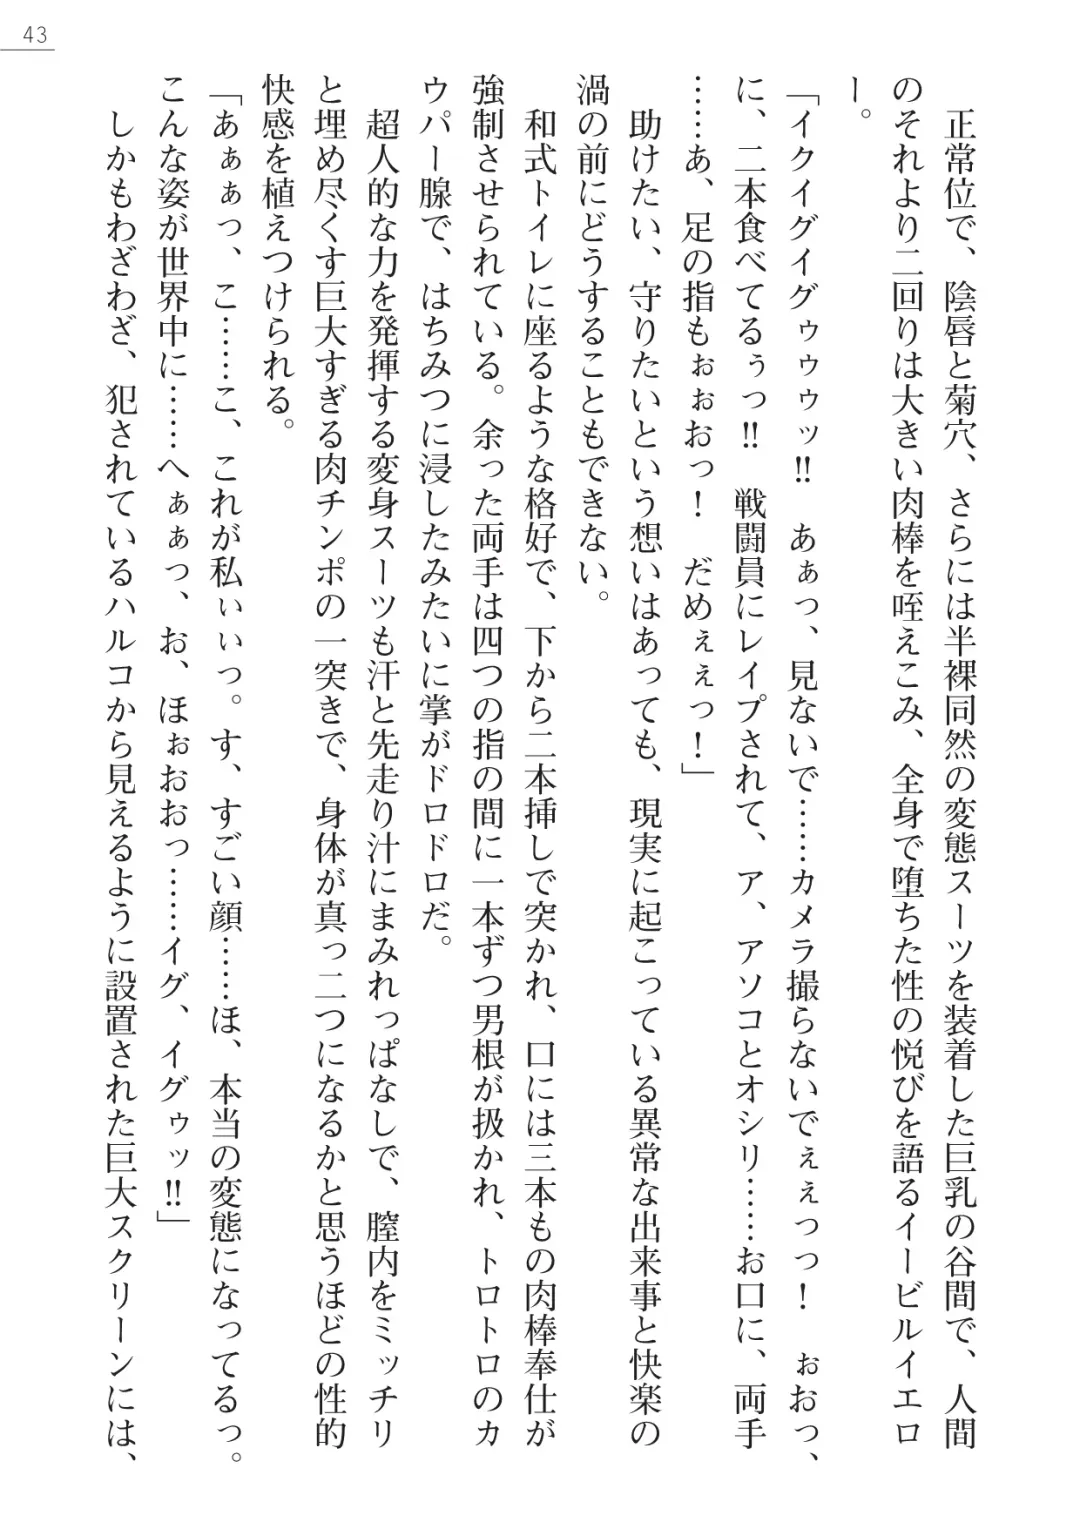 43
　正常位で、陰唇と菊穴、さらには半裸同然の変態スーツを装着した巨乳の谷間で、人間
のそれより二回りは大きい肉棒を咥えこみ、全身で堕ちた性の悦びを語るイービルイエロ
ー。
「イクイグイグゥゥゥッ‼　あぁっ、見ないで……カメラ撮らないでぇぇっっ！　ぉおっ、
に、二本食べてるぅっ‼　戦闘員にレイプされて、ア、アソコとオシリ……お口に、両手
……あ、足の指もぉぉおっ！　だめぇぇっ！」
　助けたい、守りたいという想いはあっても、現実に起こっている異常な出来事と快楽の
渦の前にどうすることもできない。
　和式トイレに座るような格好で、下から二本挿しで突かれ、口には三本もの肉棒奉仕が
強制させられている。余った両手は四つの指の間に一本ずつ男根が扱かれ、トロトロのカ
ウパー腺で、はちみつに浸したみたいに掌がドロドロだ。
　超人的な力を発揮する変身スーツも汗と先走り汁にまみれっぱなしで、膣内をミッチリ
と埋め尽くす巨大すぎる肉チンポの一突きで、身体が真っ二つになるかと思うほどの性的
快感を植えつけられる。
「あぁぁっ、こ……こ、これが私ぃぃっ。す、すごい顔……ほ、本当の変態になってるっ。
こんな姿が世界中に……へぁぁっ、お、ほぉおおっ……イグ、イグゥッ‼」
　しかもわざわざ、犯されているハルコから見えるように設置された巨大スクリーンには、